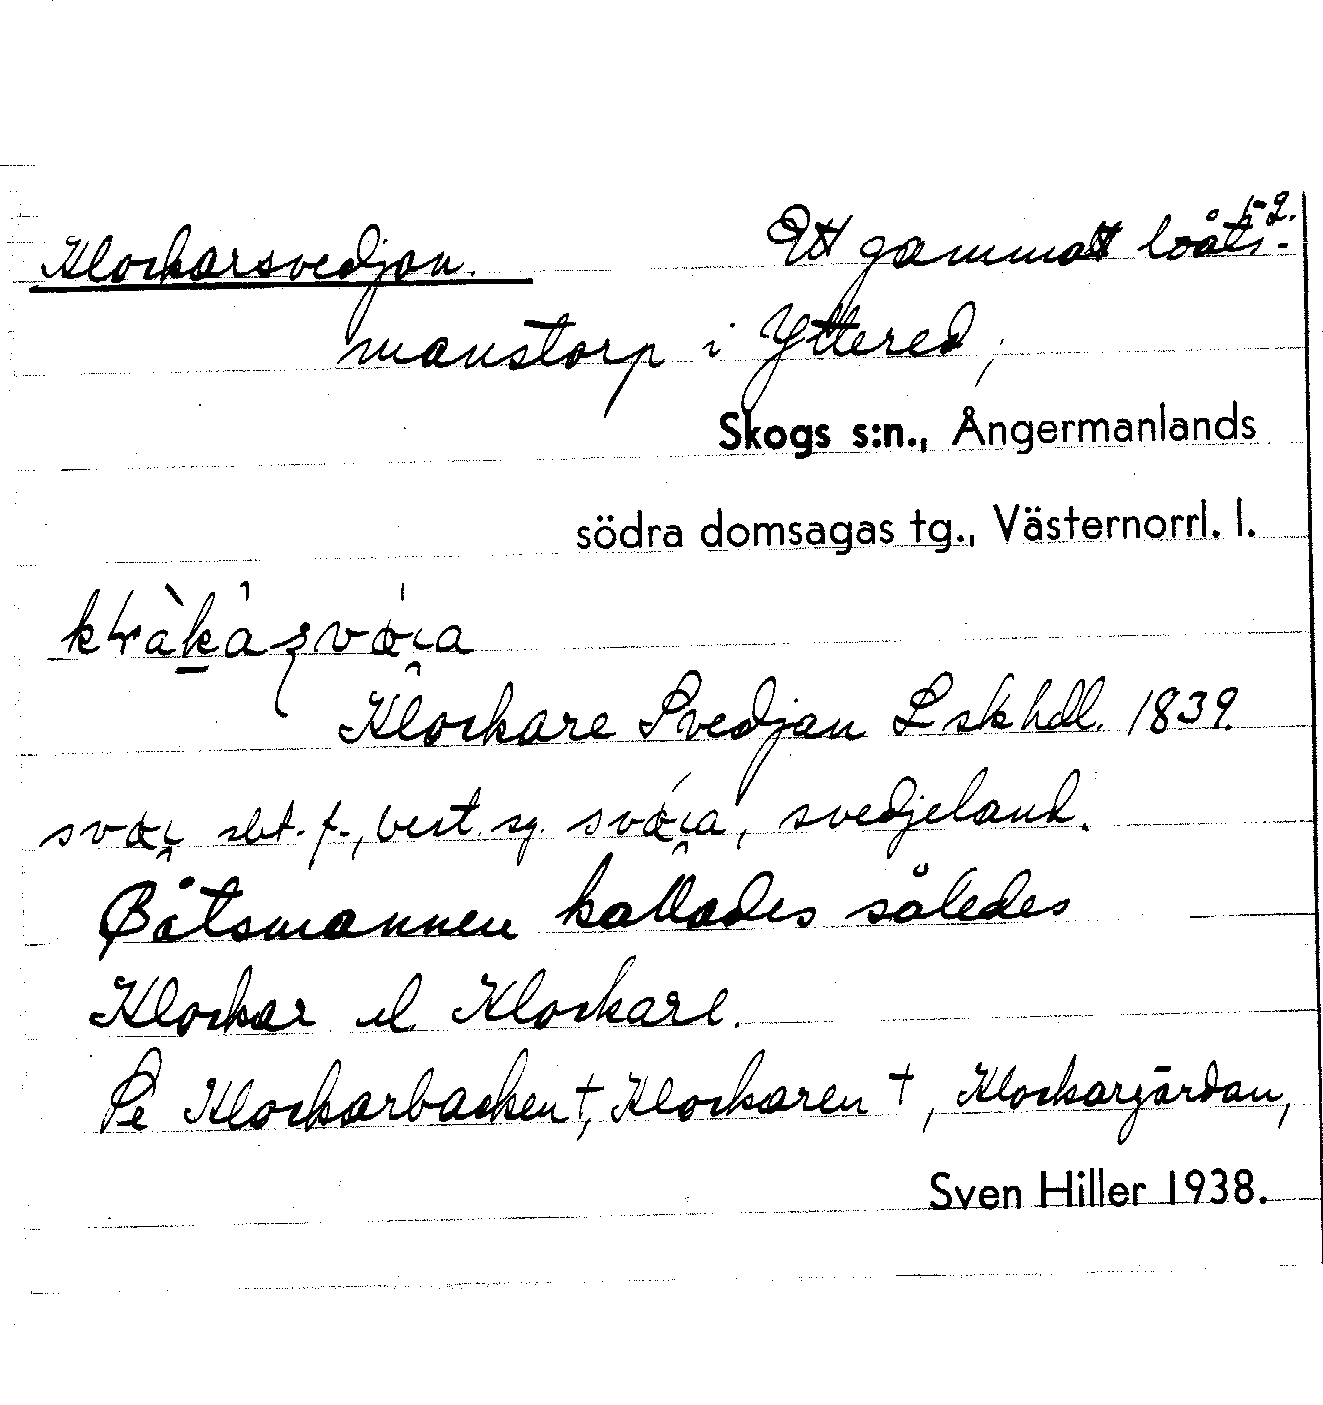 1-2.
Klockarsvedjan. Ett gammalt båts-
manstorp i Yttered,
Skogs s:n., Ångermanlands
södra domsagas tg., Västernorrl. l.
Klockare Svedjan Lskhdl. 1839.
sbt. f., best. sg. svedjeland.
Båtsmannen kallades således
Klockar el. Klockare.
Se Klockarbacken †, Klockaren †, Klockargärdan,
Sven Hiller 1938.